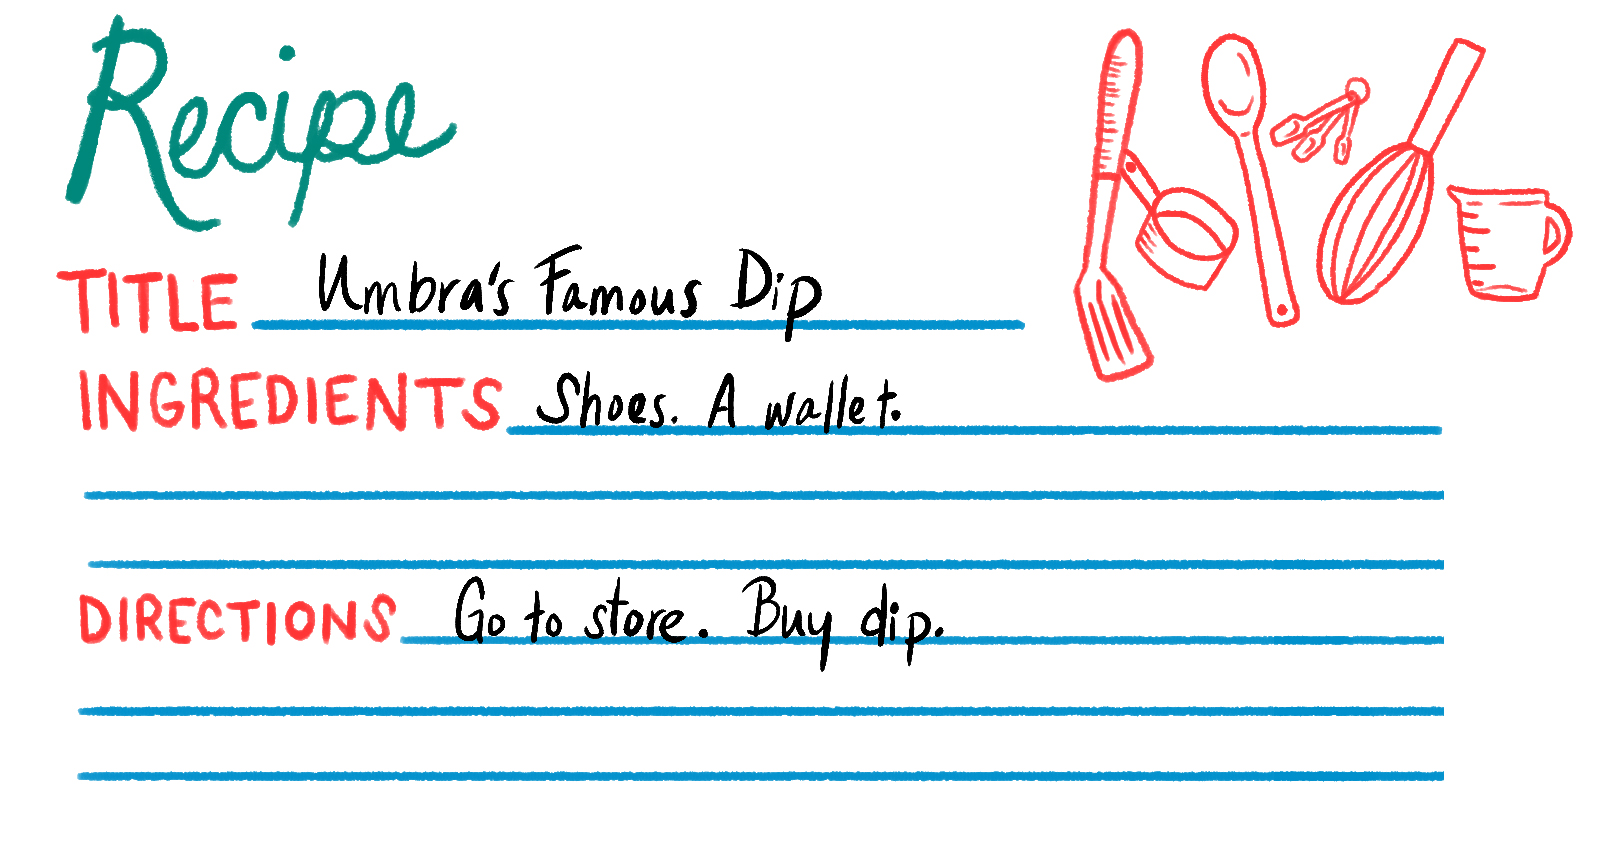 Recipe
TITLE Umbra's Famous Dip
INGREDIENTS Shoes. A wallet.
DIRECTIONS Go to store. Buy dip.